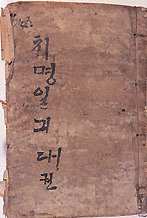 취명일긔대권